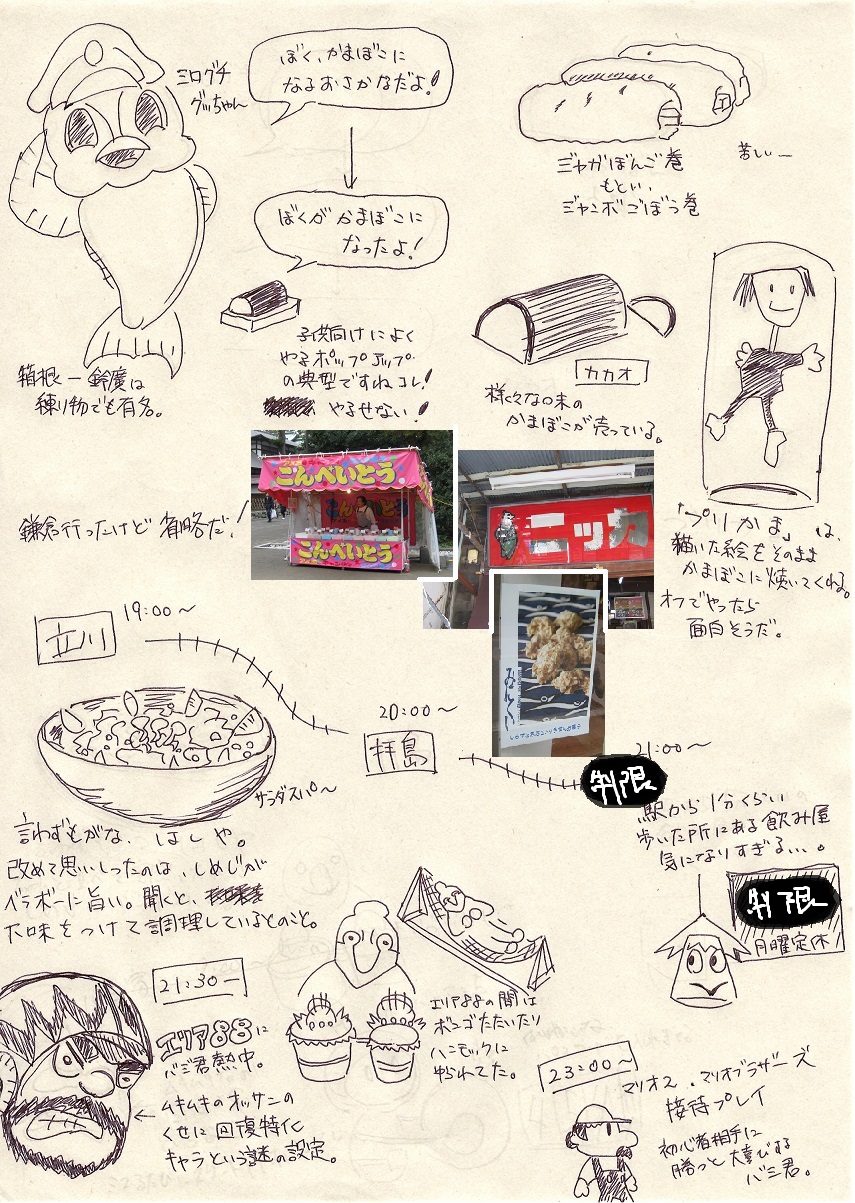 ミログチ
グッちゃん
ぼく、かまぼこに
なるおさかなだよ!
ぼくが かまぼこに
なったよ!
ジャガぼんご巻
もとい、
ジャンボごぼう巻
苦しい—
箱根一鈴廣は
練り物でも有名。
子供向けによく
やるポップアップ
の典型ですねコレ!
やるせない!
カカオ
様々な味の
かまぼこが売っている。
「プリかま」は、
描いた絵をそのまま
かまぼこに焼いてくれる。
オフでやったら
面白そうだ。
鎌倉行ったけど省略だ!
こんぺいとう
こんぺいとう
ニッカ
立川
19:00〜
20:00〜
拝島
21:00〜
制限
駅から1分くらい
歩いた所にある飲み屋
気になりすぎる...。
制限
月曜定休
サンダスパ〜
言わずもがな、はしや。
改めて思いしったのは、しめじが
ベラボーに旨い。聞くと、
下味をつけて調理しているとのこと。
21:30—
エリア88に
バジ君熱中。
ムキムキのオッサンの
くせに回復特化
キャラという謎の設定。
エリア88の間は
ボンゴたたいたり
ハンモックに
ゆられてた。
23:00〜
マリオ2、マリオブラザーズ
接待プレイ
初心者相手に
勝つと大喜びする
バジ君。